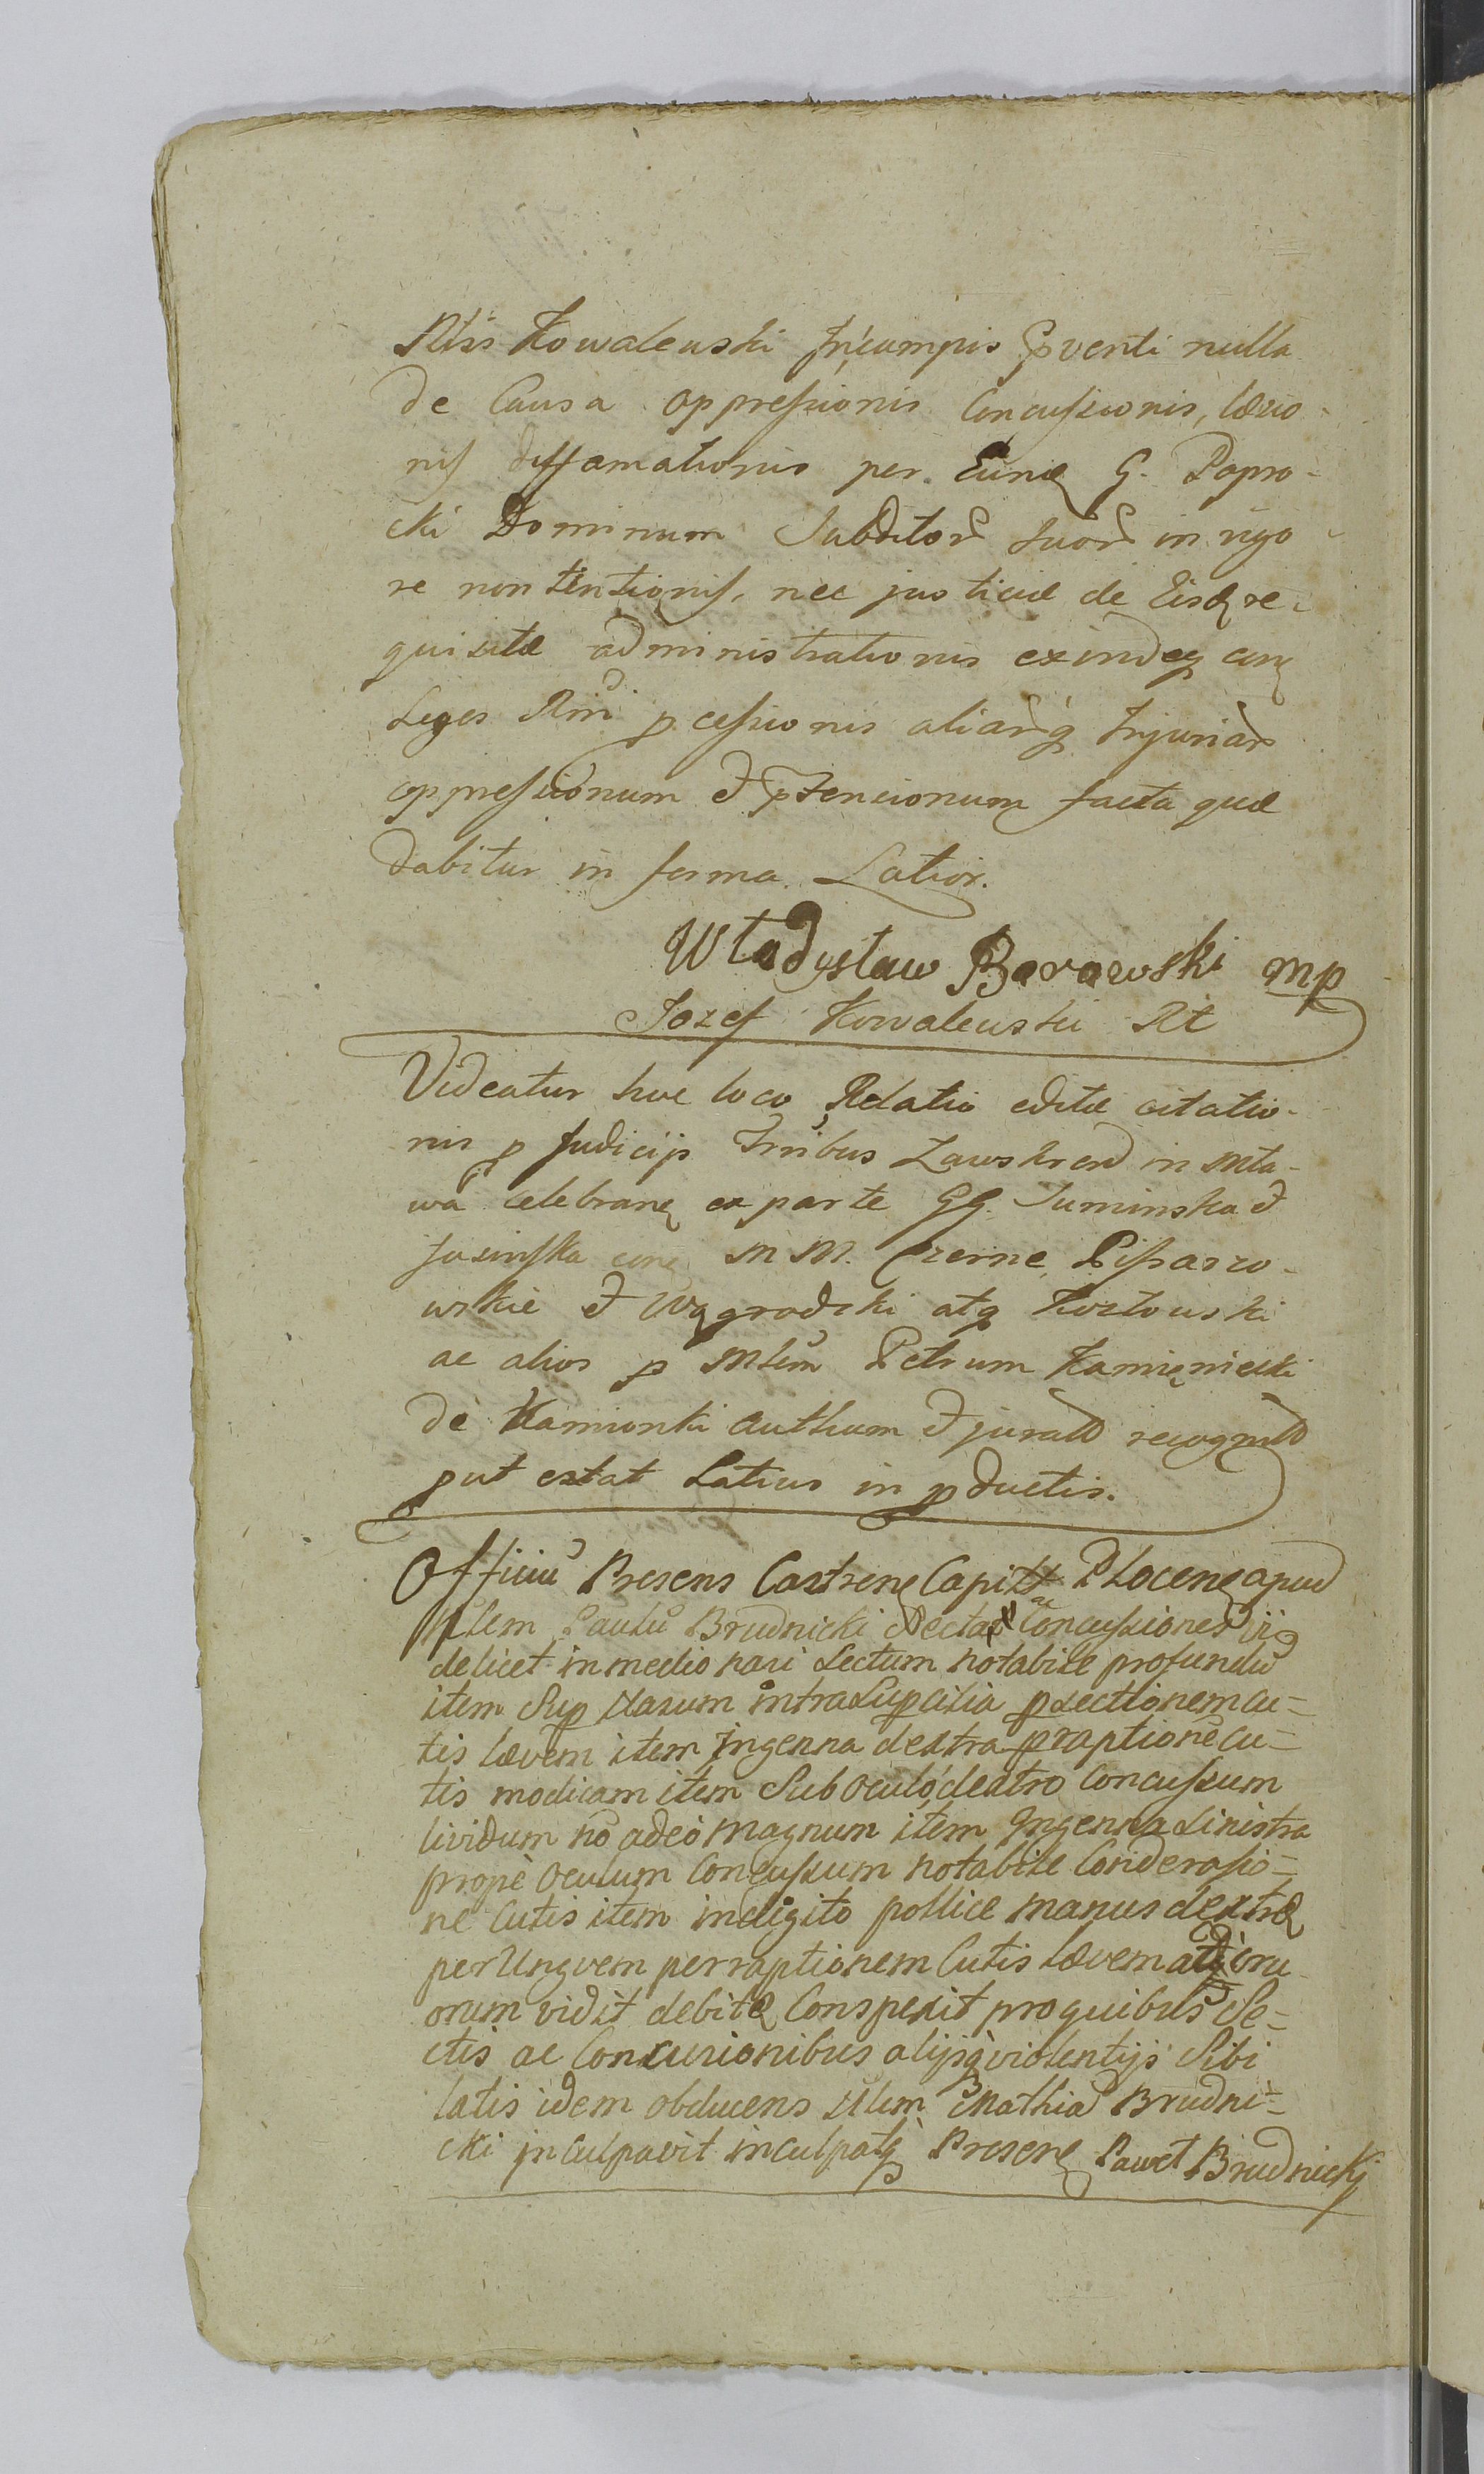 Kowalewski
de Causa oppressionis Concussionis, læsio-
nis diffamationis per Eund G. Papro-
cki Dominum Subditor Suor in rigo-
re non tentionis, nec justiciæ de Eisd re-
quisitæ administrationis exindeq con
Leges Rni pcessionis aliarq Injuriar
oppressionum et ptensionum facta quæ
dabitur in forma Latior.
Władysław Borowski mp
Jozef Kowalewski
Videatur hoc loco Relatio editæ citatio-
nis p Judicijs Zawskren in Mła-
wa celebran ex parte GG. et
con MM. Czerne,
et atq Kozłowski
ac alios p Petrum Kamięniecki
de Kamionki authum et jurat recognit
put extat Latius in pductis.
Officiu Presens Castrene Capit Plocene apud
Paulu Brudnicki Secta ac Concussiones vi
delicet in medio nasi Sectum notabile profundu
item Sup Nasum intra Supcilia psectionem cu=
tis lævem item Ingenna dextra praptione cu=
tis modicam item Sub oculo dextro Concussum
lividum no adeo magnum item Ingenna Sinistra
prope oculum Concussum notabile
ne Cutis item in digito pollice manus dextræ
per Ungvem perraptionem Cutis lævem
orum vidit debitæ Conspexit pro quibus Se=
ctis ac Concusionibus alijsq violentijs Sibi
latis idem obducens Mathia Brudni=
cki inculpavit inculpatq Presene Paweł Brudnicki